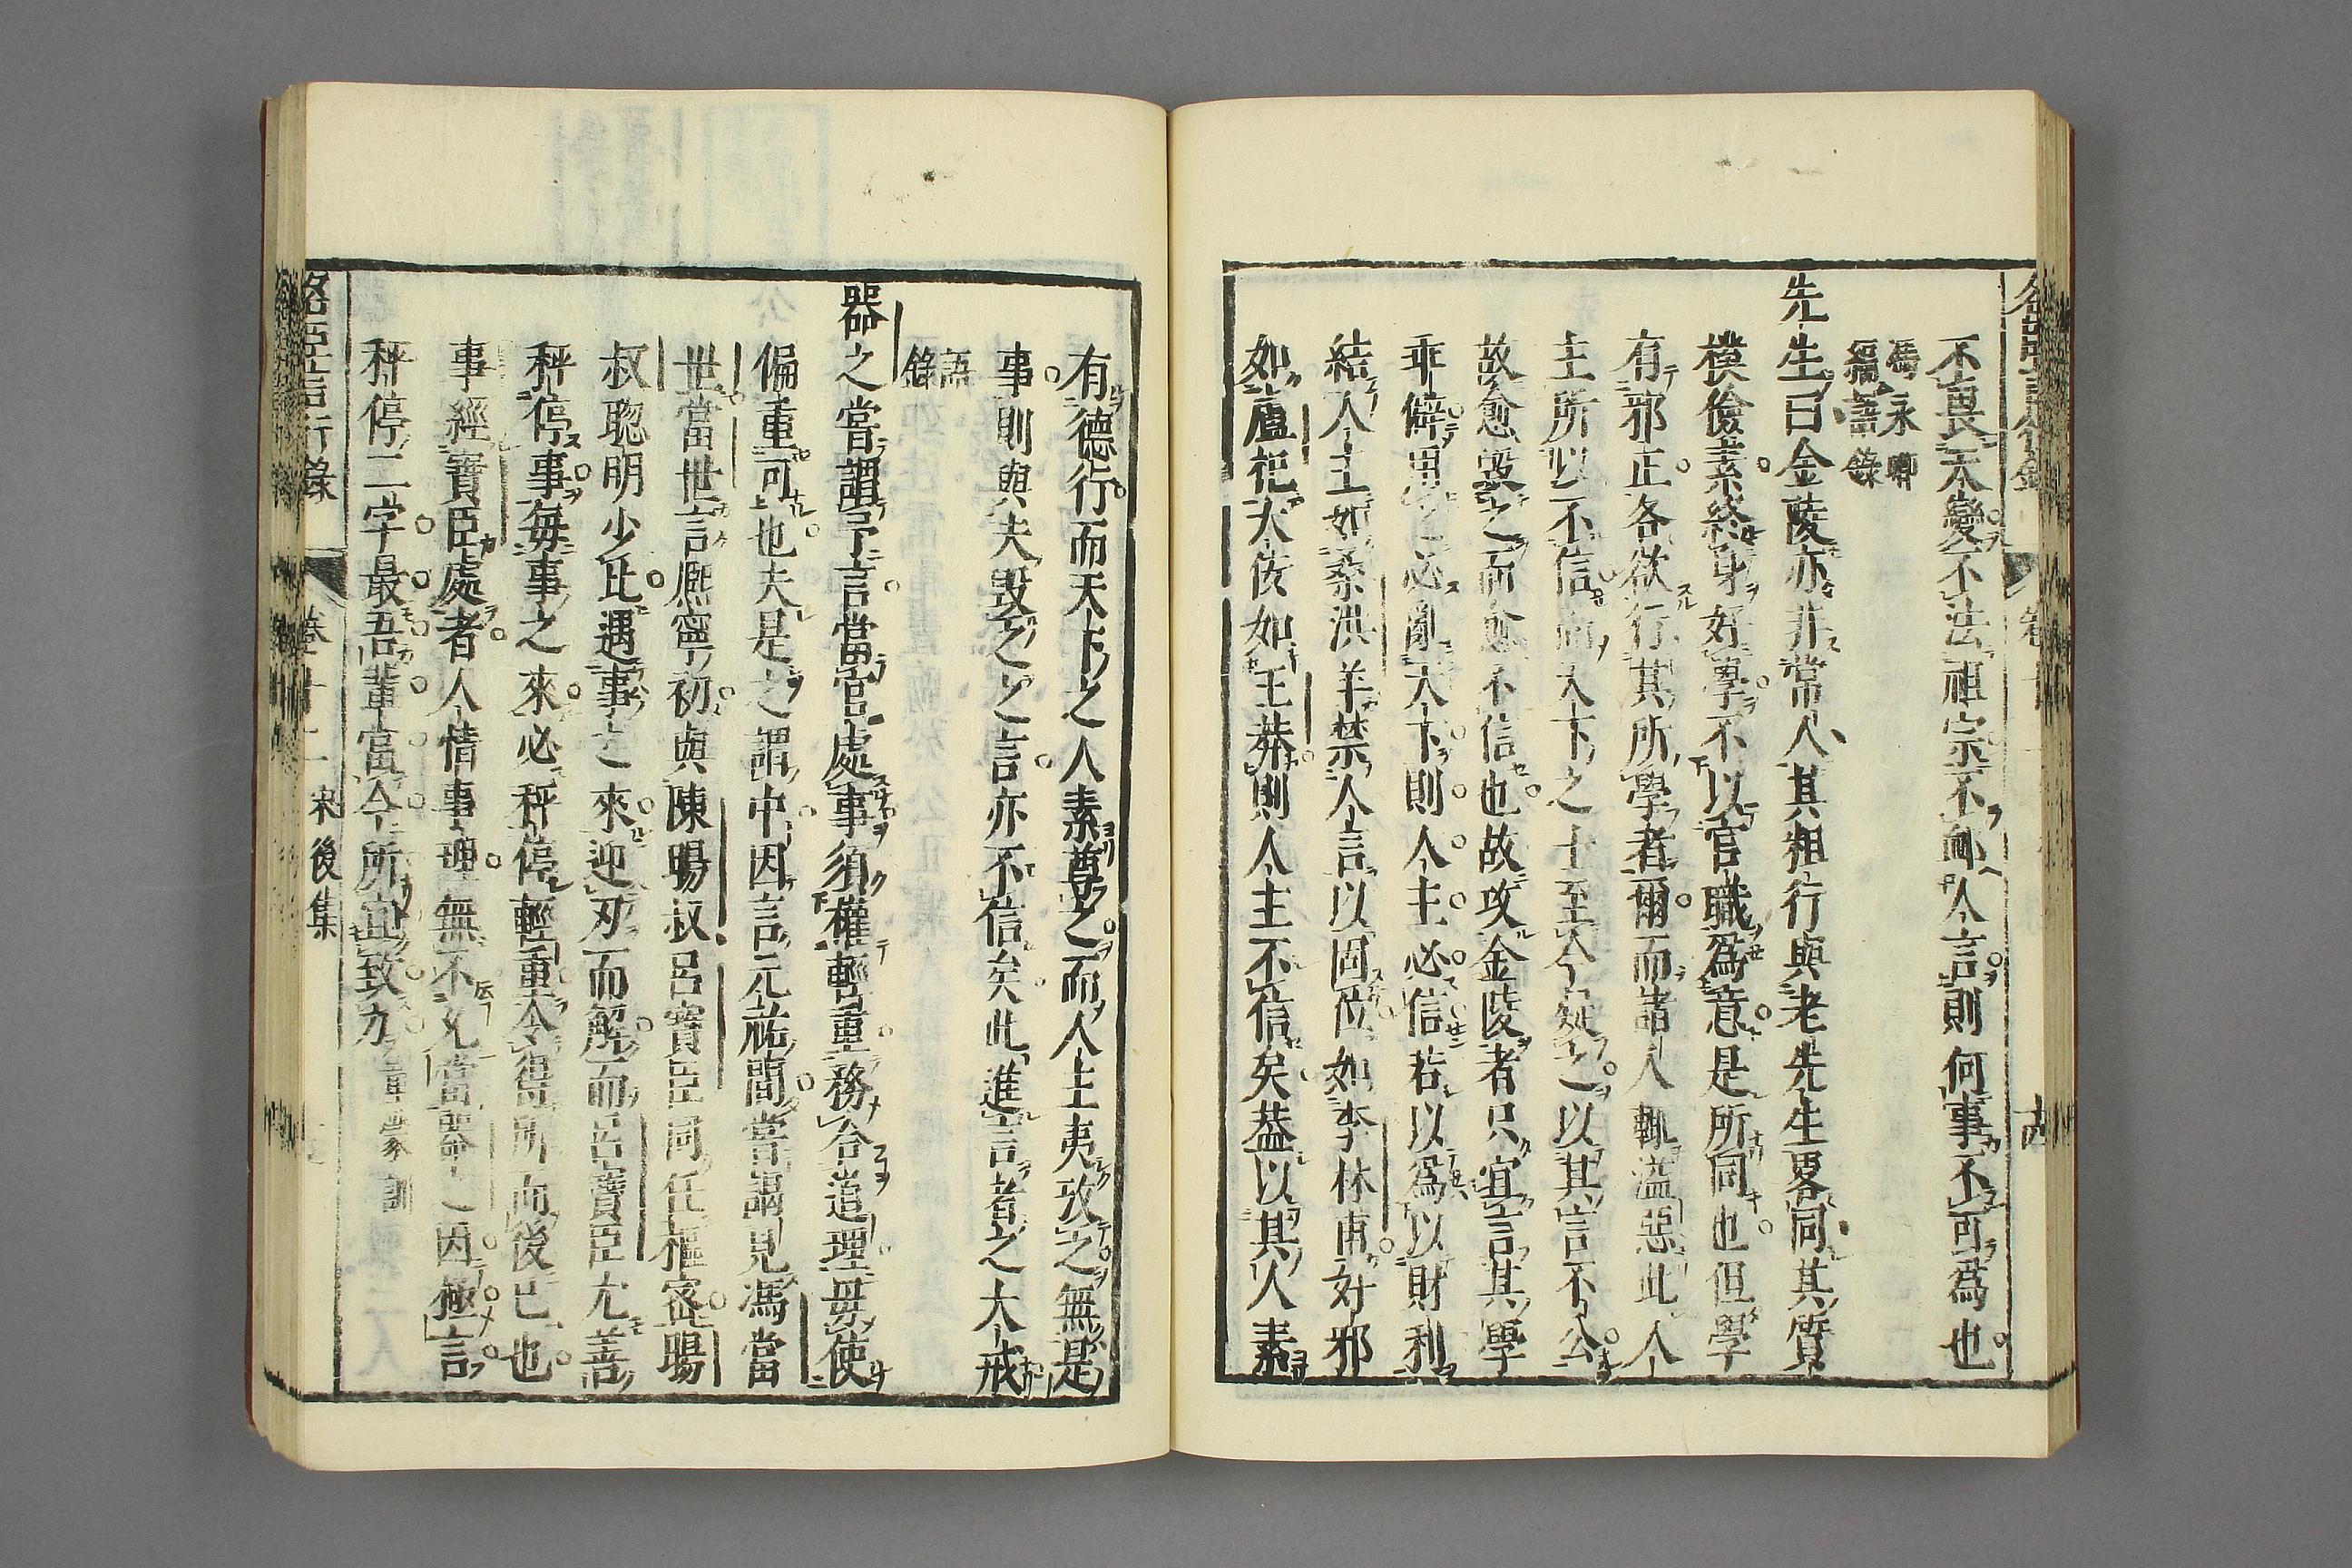 不畏天變不法祖宗不䘏人言則何事不可爲也
馬永卿
編語錄
先生曰金陵亦非常人其粗行與老先生畧同其質
樸儉素終身好學不以官職爲意是所同也但學
有邪正各欲行其所學者爾而諸人輙溢惡此人
主所以不信而天下之士至今疑之以其言不公
故愈毀之而愈不信也故攻金陵者只宜言其學
乖僻用之必亂天下則人主必信若以爲以財利
結人主如桑洪羊禁人言以固位如李林甫好邪
如盧杞大佞如王莽則人主不信矣葢以其人素
有德行而天下之人素尊之而人主夷攷之無是
事則與夫毀之之言亦不信矣此進言者之大戒
語
錄
器之嘗謂予言當官處事須權輕重務合道理毋使
偏重可也夫是之謂中因言元祐間嘗謁見馮當
世當世言熈寧初與陳暘叔呂寶臣同任樞密暘
叔聦明少比遇事之來迎刃而解而呂寶臣尤善
秤停事每事之來必秤停輕重令得所而後已也
事經寶臣處者人情事理無不允當器之因極言
秤停二字最吾輩當今所宜致力 童蒙訓
名臣言行錄 卷十二 宋後集